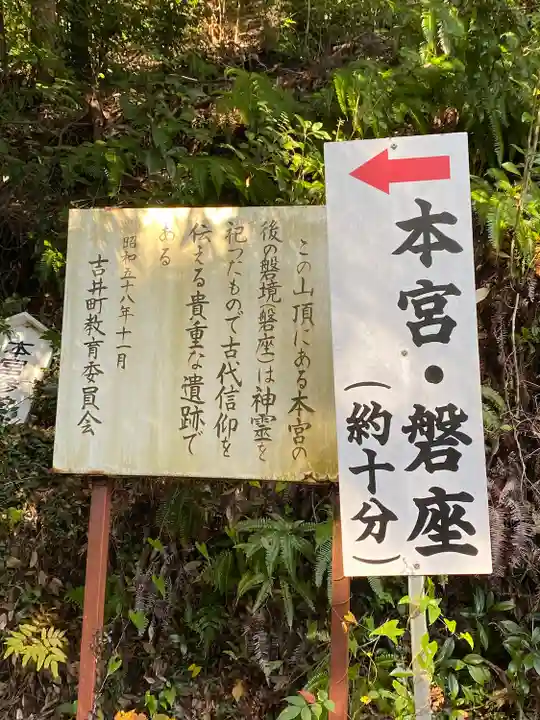 本宮・磐座
(約十分)
この山頂にある本宮の
後の磐境(磐座)は神霊を
祀つたもので古代信仰を
伝える貴重な遺跡で
ある
昭和五十八年十一月
吉井町教育委員会
本宮